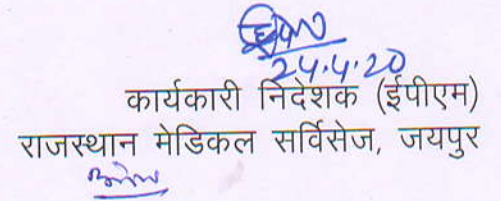 24.4.20
कार्यकारी निदेशक (ईपीएम)
राजस्थान मेडिकल सर्विसेज, जयपुर